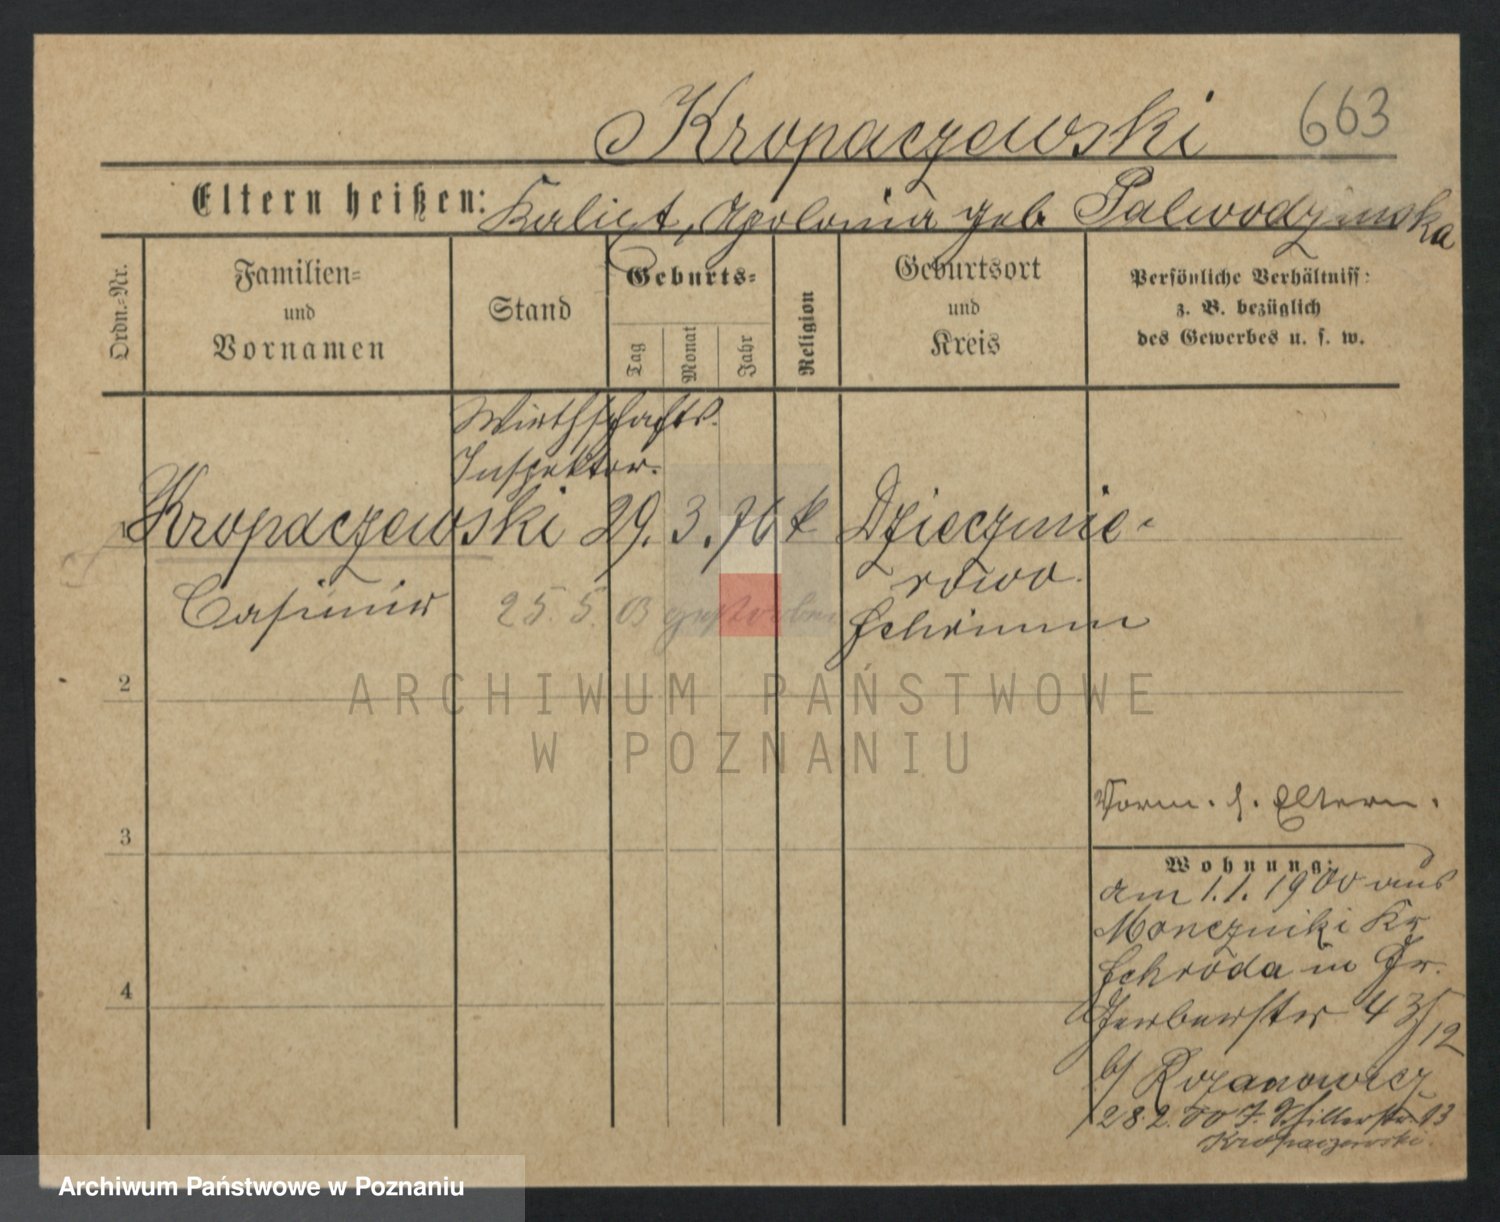 Kropaczewski 663
Eltern heißen: Kalixt, Apolonia geb.
Ordn.-Nr.
Familien-
und
Vornamen
Stand
Geburts-
Tag
Monat
Jahr
Religion
Geburtsort
und
Kreis
Persönliche Verhältniss:
z. B. bezüglich
des Gewerbes u. s. w.
Wirthschafts.
Inspektor.
1 Kropaczewski 29. 3. 76 k Dzieczmie-
rowo.
Casimir 25. 5. 03 gestorben Schrimm
2
ARCHIWUM PAŃSTWOWE
W POZNANIU
3
4
Vorm. s. Eltern.
Wohnung:
am 1.1. 1900 aus
Monczniki Kr
Schroda in Gr.
Gerberstr 4 3/12
b/ Rozanowicz
28.2.00 J. Schillerstr. 13
Kropaczewski.
Archiwum Państwowe w Poznaniu